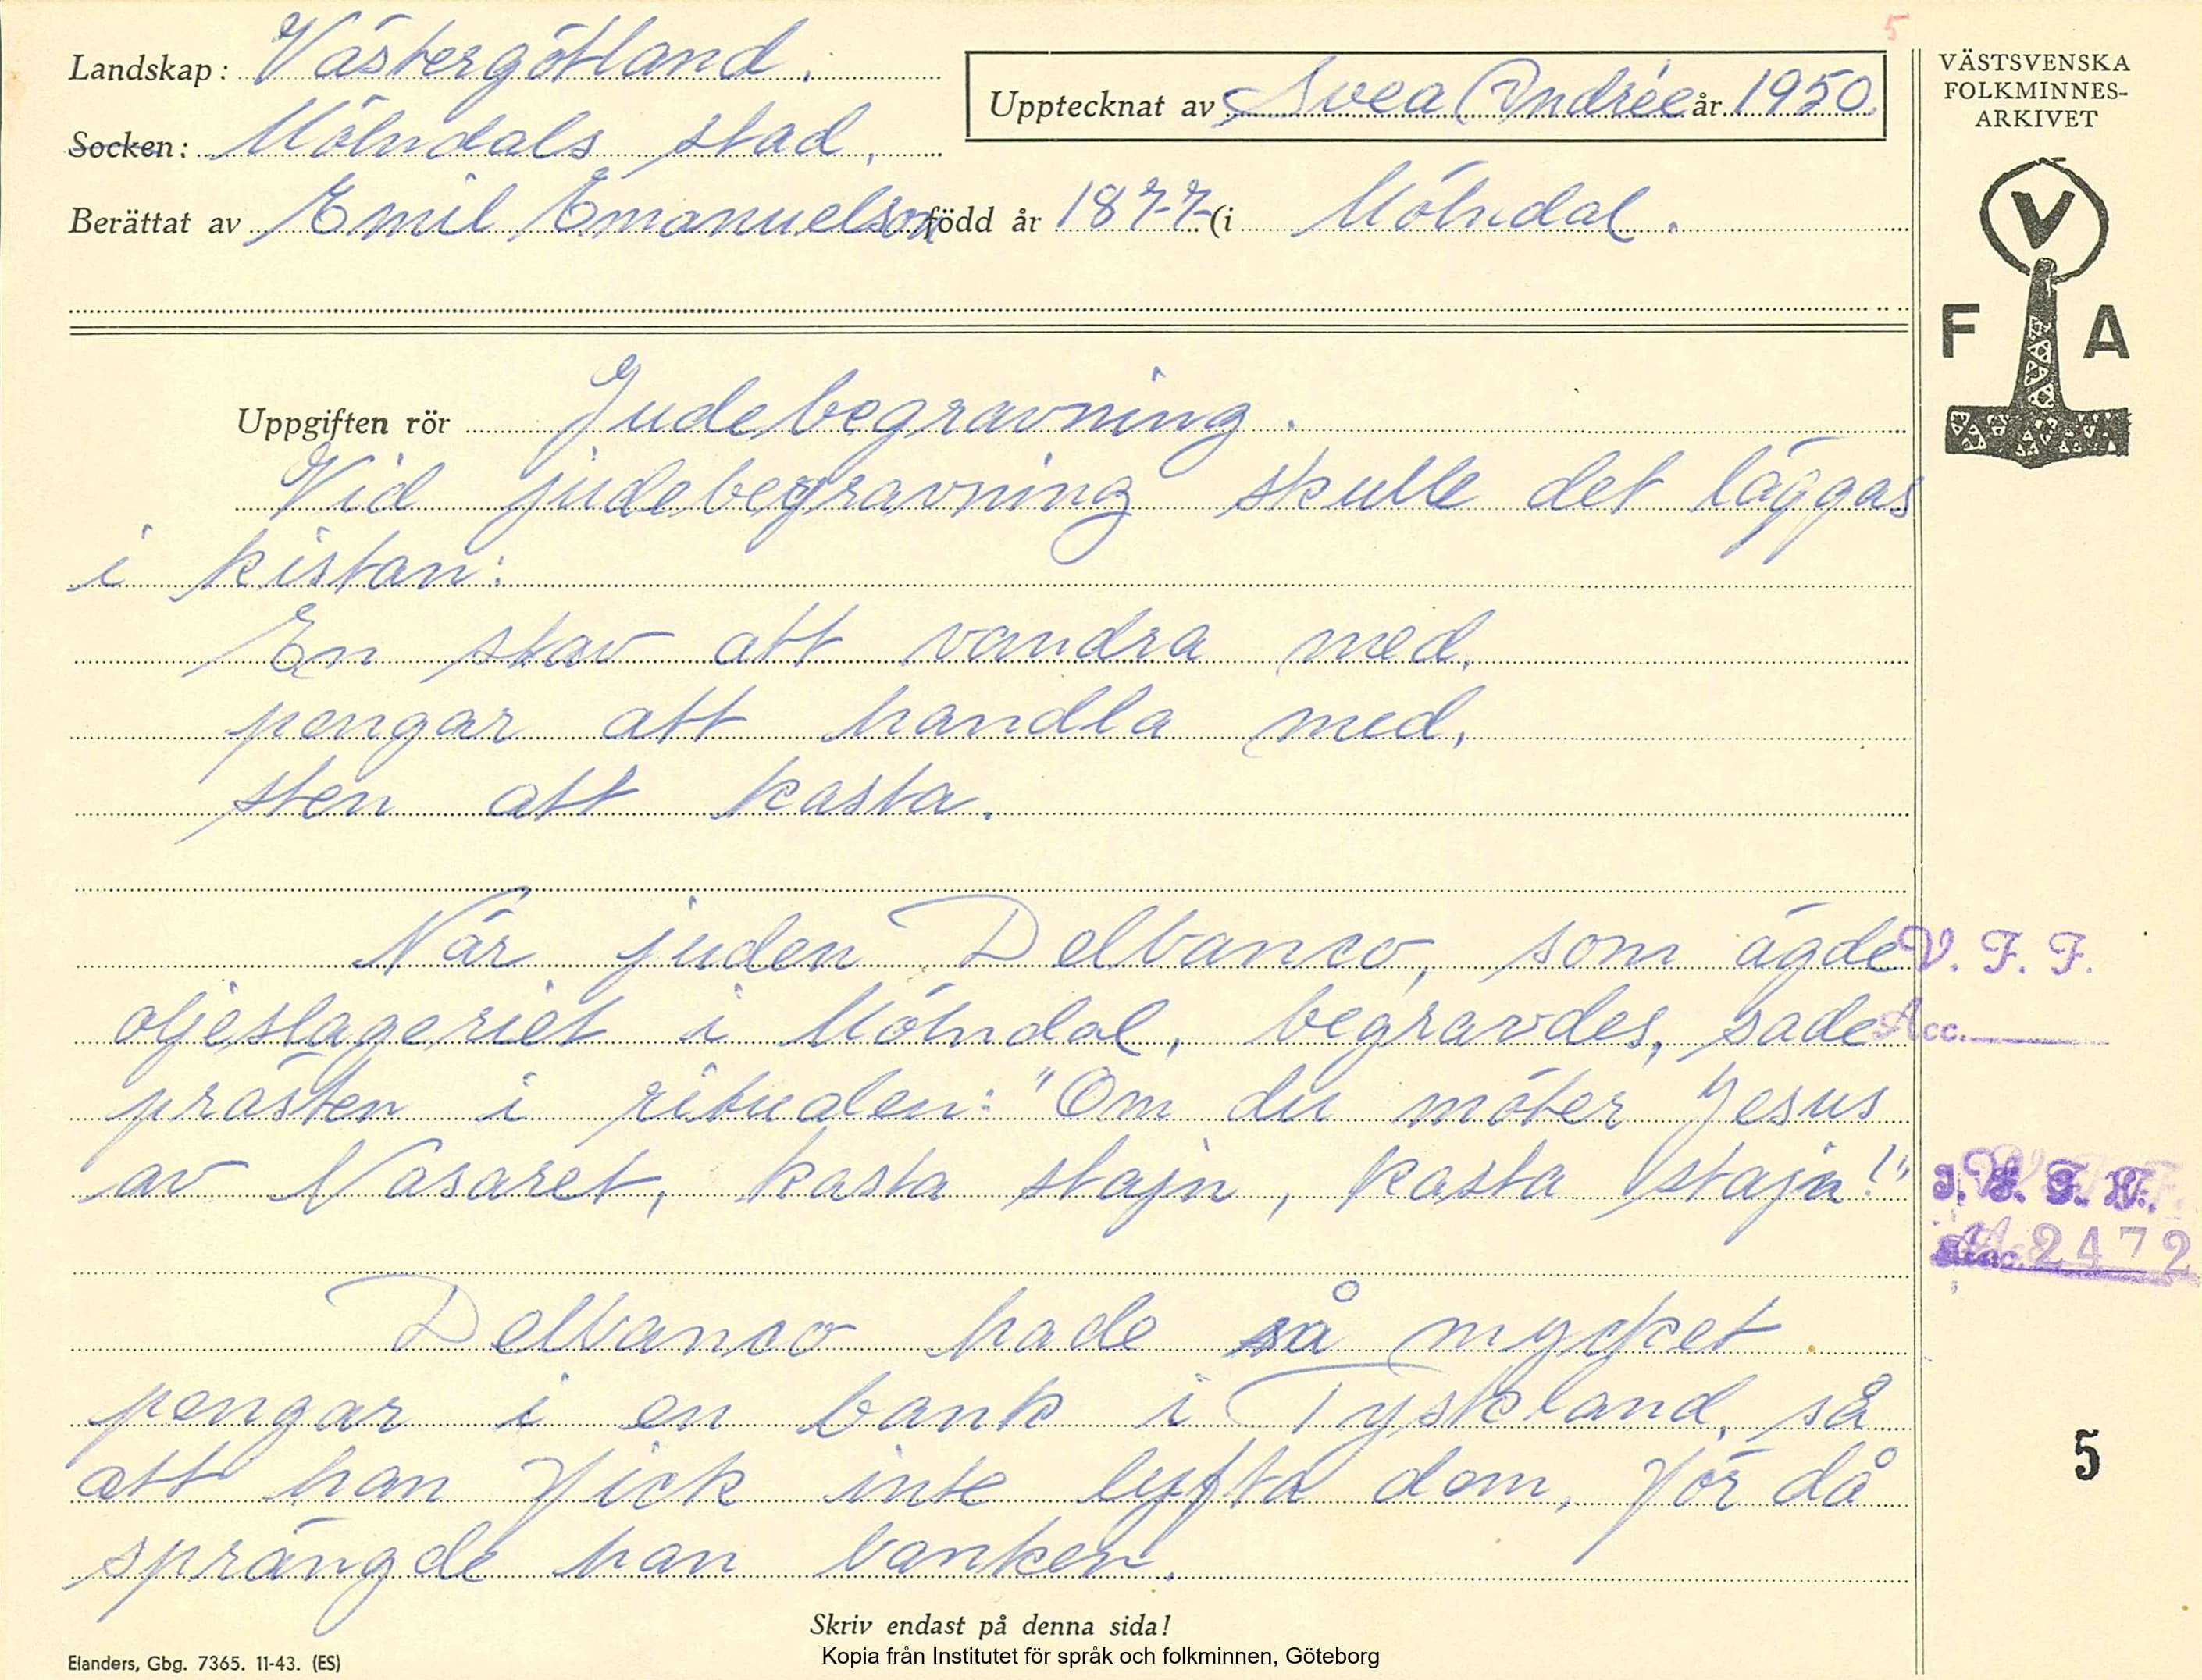 5
Landskap: Västergötland.
Socken: Mölndals stad.
Upptecknat av Svea Andrée år 1950.
Berättat av Emil Emanuelson född år 1877 (i Mölndal.
VÄSTSVENSKA
FOLKMINNES-
ARKIVET
V
F A
Uppgiften rör Judebegravning.
Vid judebegravning skulle det läggas
i kistan:
En stav att vandra med,
pengar att handla med,
sten att kasta.
När juden Delbanco, som ägde
oljeslageriet i Mölndal, begravdes, sade
prästen i ritualen: "Om du möter Jesus
av Nasaret, kasta stajn, kasta stajn!"
Delbanco hade så mycket
pengar i en bank i Tyskland, så
att han fick inte lyfta dom, för då
sprängde han banken.
V. F. F.
Acc.
2472
5
Skriv endast på denna sida!
Kopia från Institutet för språk och folkminnen, Göteborg
Elanders, Gbg. 7365. 11-43. (ES)